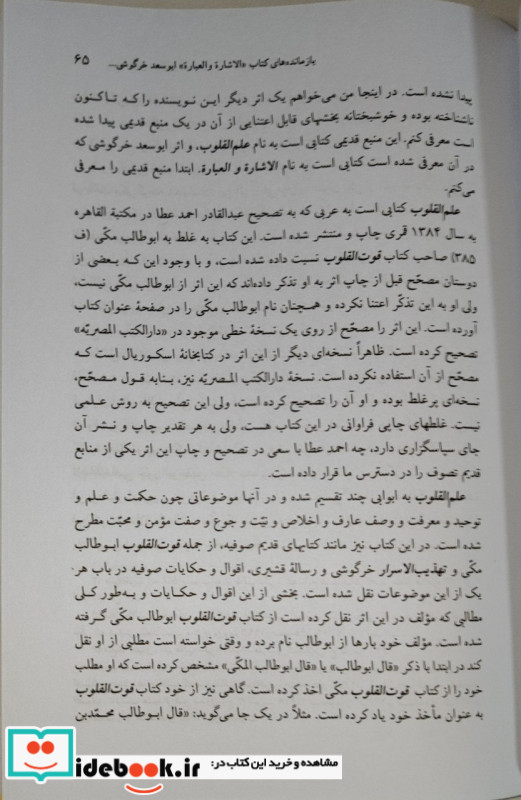 بازمانده‌های کتاب «الاشارة والعبارة» ابوسعد خرگوشی... ۶۵
پیدا نشده است. در اینجا من می‌خواهم یک اثر دیگر این نویسنده را که تاکنون
ناشناخته بوده و خوشبختانه بخشهای قابل اعتنایی از آن در یک منبع قدیمی پیدا شده
است معرفی کنم. این منبع قدیمی کتابی است به نام علم‌القلوب، و اثر ابوسعد خرگوشی که
در آن معرفی شده است کتابی است به نام الاشارة و العبارة. ابتدا منبع قدیمی را معرفی
می‌کنم.
علم‌القلوب کتابی است به عربی که به تصحیح عبدالقادر احمد عطا در مکتبة القاهره
به سال ۱۳۸۴ قمری چاپ و منتشر شده است. این کتاب به غلط به ابوطالب مکّی (ف
۳۸۵) صاحب کتاب قوت‌القلوب نسبت داده شده است، و با وجود این که بعضی از
دوستان مصحّح قبل از چاپ اثر به او تذکر داده‌اند که این اثر از ابوطالب مکّی نیست،
ولی او به این تذکّر اعتنا نکرده و همچنان نام ابوطالب مکّی را در صفحهٔ عنوان کتاب
آورده است. این اثر را مصحّح از روی یک نسخهٔ خطی موجود در «دارالکتب المصریّه»
تصحیح کرده است. ظاهراً نسخه‌ای دیگر از این اثر در کتابخانهٔ اسکوریال است که
مصحّح از آن استفاده نکرده است. نسخهٔ دارالکتب المصریّه نیز، بنابه قول مصحّح،
نسخه‌ای پرغلط بوده و او آن را تصحیح کرده است، ولی این تصحیح به روش علمی
نیست. غلطهای چاپی فراوانی در این کتاب هست، ولی به هر تقدیر چاپ و نشر آن
جای سپاسگزاری دارد، چه احمد عطا با سعی در تصحیح و چاپ این اثر یکی از منابع
قدیم تصوف را در دسترس ما قرار داده است.
علم‌القلوب به ابوابی چند تقسیم شده و در آنها موضوعاتی چون حکمت و علم و
توحید و معرفت و وصف عارف و اخلاص و نیّت و جوع و صفت مؤمن و محبّت مطرح
شده است. در این کتاب نیز مانند کتابهای قدیم صوفیه، از جمله قوت‌القلوب ابوطالب
مکّی و تهذیب‌الاسرار خرگوشی و رسالهٔ قشیری، اقوال و حکایات صوفیه در باب هر-
یک از این موضوعات نقل شده است. بخشی از این اقوال و حکایات و به‌طور کلی
مطالبی که مؤلف در این اثر نقل کرده است از کتاب قوت‌القلوب ابوطالب مکّی گرفته
شده است. مؤلف خود بارها از ابوطالب نام برده و وقتی خواسته است مطلبی از او نقل
کند در ابتدا با ذکر «قال ابوطالب» یا «قال ابوطالب المکّی» مشخص کرده است که او مطلب
خود را از کتاب قوت‌القلوب مکّی اخذ کرده است. گاهی نیز از خود کتاب قوت‌القلوب
به عنوان مأخذ خود یاد کرده است. مثلاً در یک جا می‌گوید: «قال ابوطالب محمّدبن
مشاهده و خرید این کتاب در:
idebook.ir